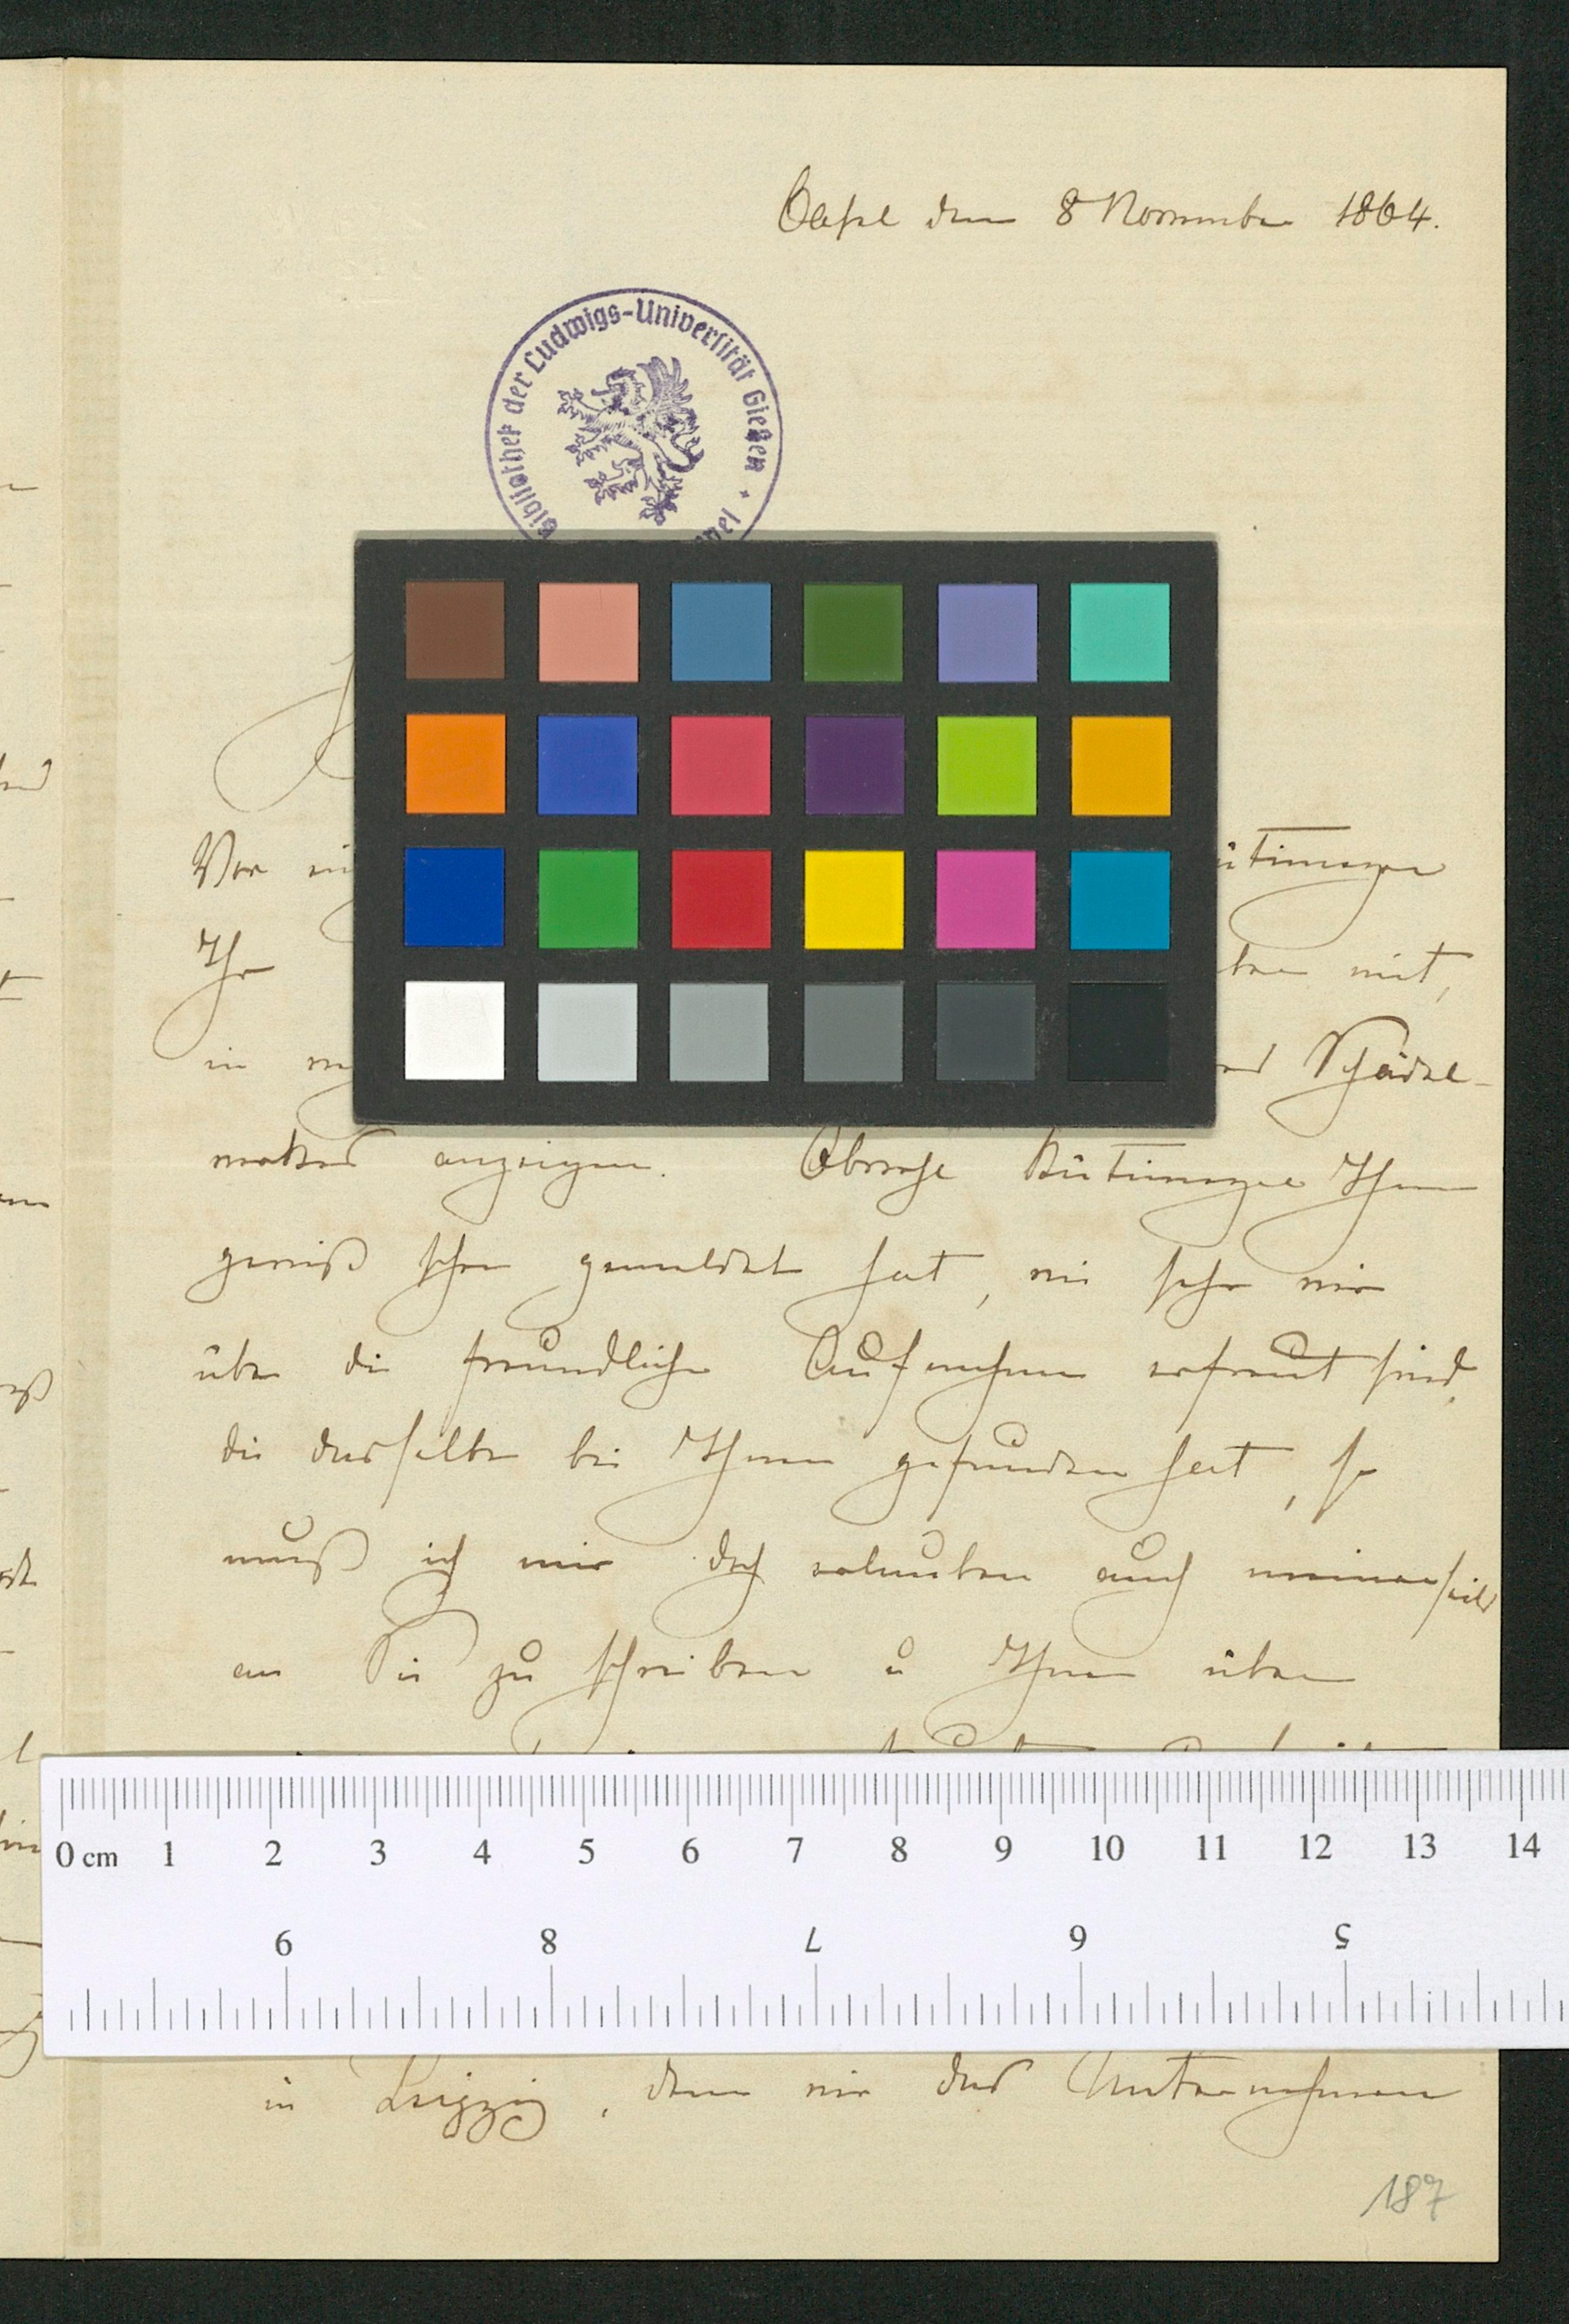 Basel den 8 November 1864.
Bibliothek der Ludwigs-Universität Gießen
Vor
ütimeyer
Ihr
ben mit,
in
Schädel-
werkes anzeigen. Obwohl Rütimeyer Ihnen
gewiß schon gemeldet hat, wie sehr wir
über die freundliche Aufnahme erfreut sind,
die dasselbe bei Ihnen gefunden hat, so
muß ich mir doch erlauben auch meinerseits
an Sie zu schreiben u Ihnen über
0 cm 1 2 3 4 5 6 7 8 9 10 11 12 13 14
9 8 7 6 5
in Leipzig, dem wir das Unternehmen
187